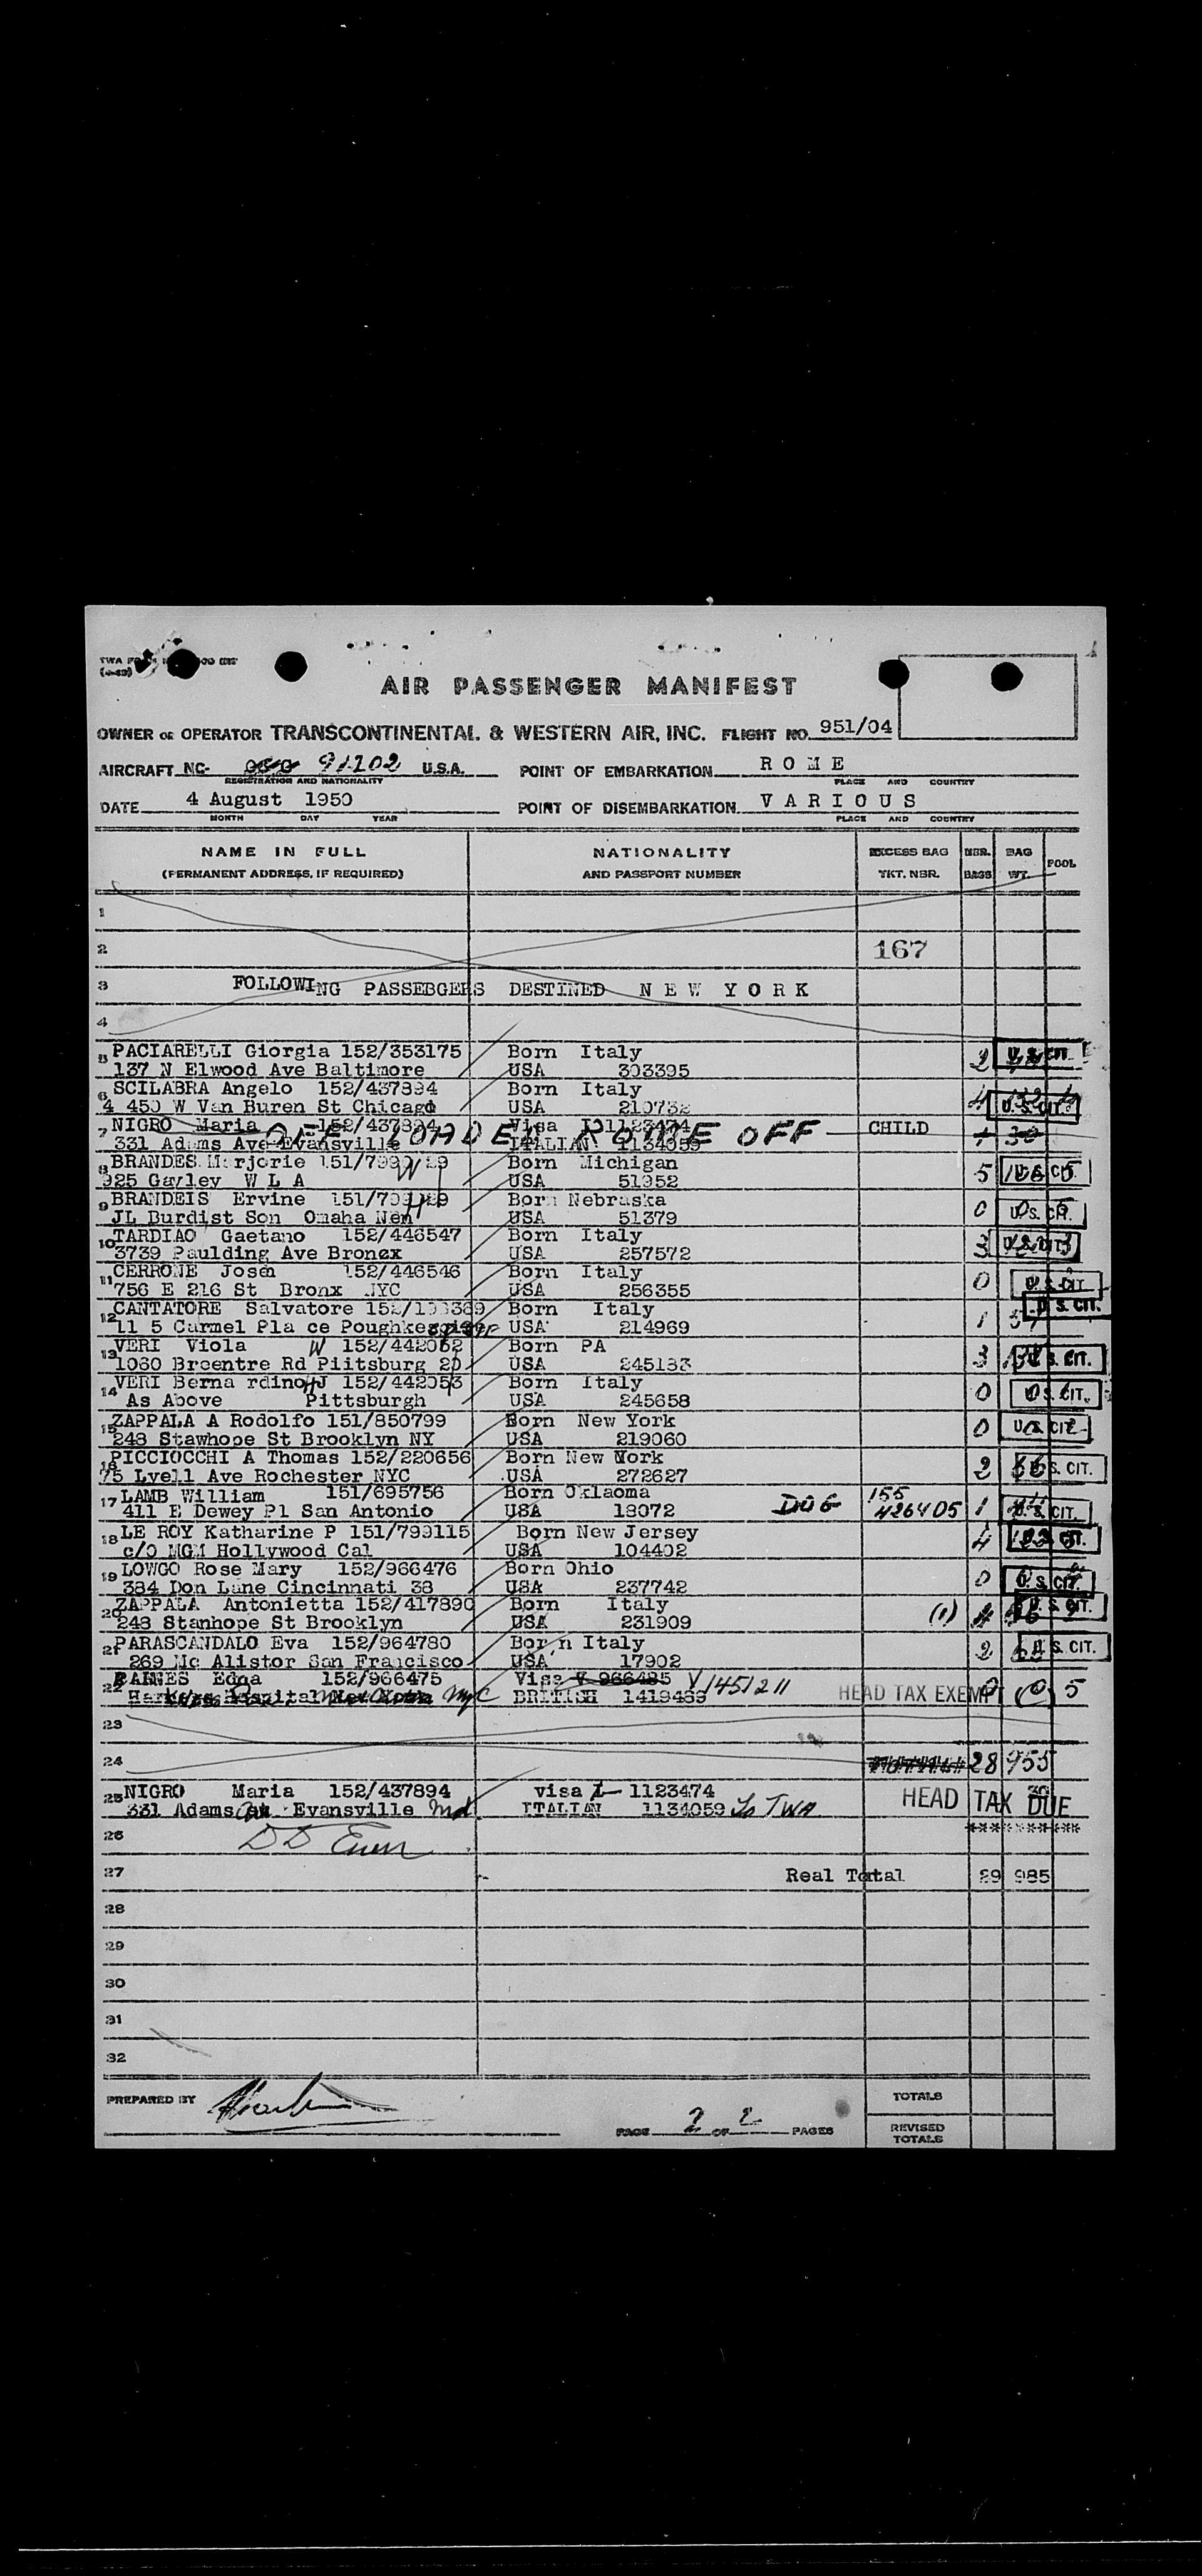 AIR PASSENGER MANIFEST
OWNER OR OPERATOR TRANSCONTINENTAL & WESTERN AIR, INC. FLIGHT NO. 951/04
AIRCRAFT NC- 91202 U.S.A. POINT OF EMBARKATION R O M E
REGISTRATION AND NATIONALITY PLACE AND COUNTRY
DATE 4 August 1950 POINT OF DISEMBARKATION V A R I O U S
MONTH DAY YEAR PLACE AND COUNTRY
NAME IN FULL NATIONALITY EXCESS BAG NBR. BAG POOL
(PERMANENT ADDRESS, IF REQUIRED) AND PASSPORT NUMBER TKT. NBR. BAGS WT.
1
2 167
3 FOLLOWING PASSEBGERS DESTINED N E W Y O R K
4
5 PACIARELLI Giorgia 152/353175 Born Italy
137 N Elwood Ave Baltimore USA 303395 2 U.S. CIT.
6 SCILABRA Angelo 152/437894 Born Italy
4 450 W Van Buren St Chicago USA 210732 4 U.S. CIT.
7 NIGRO Maria 152/437894 Visa 1123474
OFF LOADED ROME OFF CHILD 1 30
331 Adams Ave Evansville ITALIAN 1134059
8 BRANDES Marjorie Born Michigan
925 Gayley W L A W USA 51352 5 U.S. CIT.
9 BRANDEIS Ervine Born Nebraska
JL Burdist Son Omaha Neh H USA 51379 0 U.S. CIT.
10 TARDIAO Gaetano 152/446547 Born Italy
3739 Paulding Ave Bronex USA 257572 3 U.S. CIT.
11 CERRONE Josen 152/446546 Born Italy
756 E 216 St Bronx NYC USA 256355 0 U.S. CIT.
12 CANTATORE Salvatore Born Italy
11 5 Carmel Pla ce USA 214969 1 U.S. CIT.
13 VERI Viola W 152/442052 Born PA
1060 Brcentre Rd Piitsburg 20 USA 245183 3 U.S. CIT.
14 VERI Berna rdino H J 152/442053 Born Italy
As Above Pittsburgh USA 245658 0 U.S. CIT.
15 ZAPPALA A Rodolfo 151/850799 Born New York
248 Stawhope St Brooklyn NY USA 219060 0 U.S. CIT.
16 PICCIOCCHI A Thomas 152/220656 Born New York
75 Lyell Ave Rochester NYC USA 272627 2 U.S. CIT.
17 LAMB William 151/695756 Born Oklaoma 155
411 E Dewey Pl San Antonio USA 18072 DOG 426405 1 U.S. CIT.
18 LE ROY Katharine P 151/799115 Born New Jersey
c/o MGM Hollywood Cal USA 104402 4 U.S. CIT.
19 LOWGO Rose Mary 152/966476 Born Ohio
384 Don Lane Cincinnati 38 USA 237742 0 U.S. CIT.
20 ZAPPALA Antonietta 152/417890 Born Italy
248 Stanhope St Brooklyn USA 231909 (1) U.S. CIT.
21 PARASCANDALO Eva 152/964780 Bor n Italy
269 Mc Alistor San Francisco USA 17902 2 U.S. CIT.
22 BAINES Edna 152/966475 Visa V 966485 V 1451211
NYC BRITISH 1419489 HEAD TAX EXEMPT 0 (0) 5
23
24 28 955
25 NIGRO Maria 152/437894 visa 1123474 30
331 Adams Evansville ITALIAN 1134059 To TWA HEAD TAX DUE
26 **********
27 Real Total 29 985
28
29
30
31
32
PREPARED BY TOTALS
PAGE 2 OF 2 PAGES REVISED TOTALS